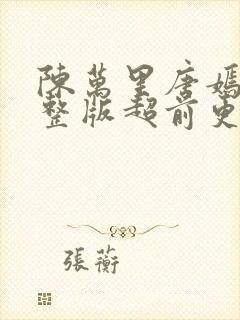 陳萬里唐嫣
整版超前更
張蘅